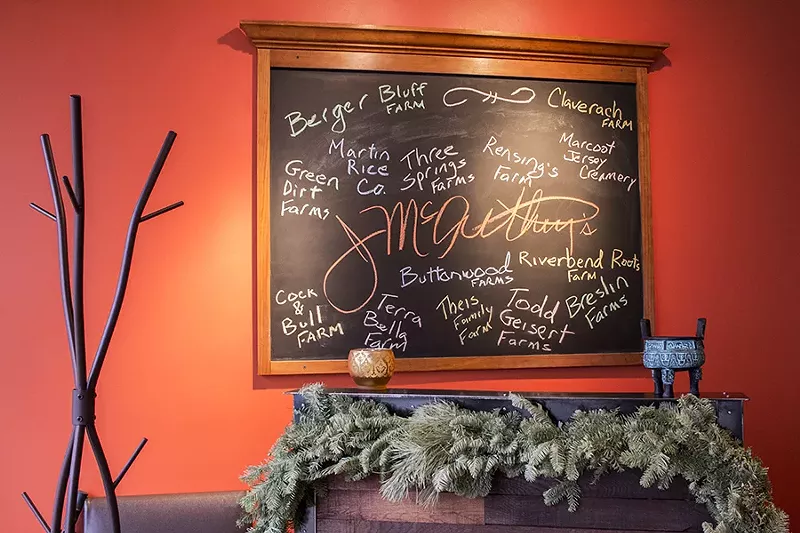 Berger Bluff
FARM
Claverach
FARM
Martin
Rice
Co.
Three
Springs
Farms
Rensing's
Farm
Marcoot
Jersey
Creamery
Green
Dirt
Farms
J. McGuthy's
Buttonwood
FARMS
Riverbend Roots
FARM
Cock
&
Bull
FARM
Terra
Bella
Farm
Theis
Family
Farm
Todd
Geisert
FARMS
Breslin
Farms